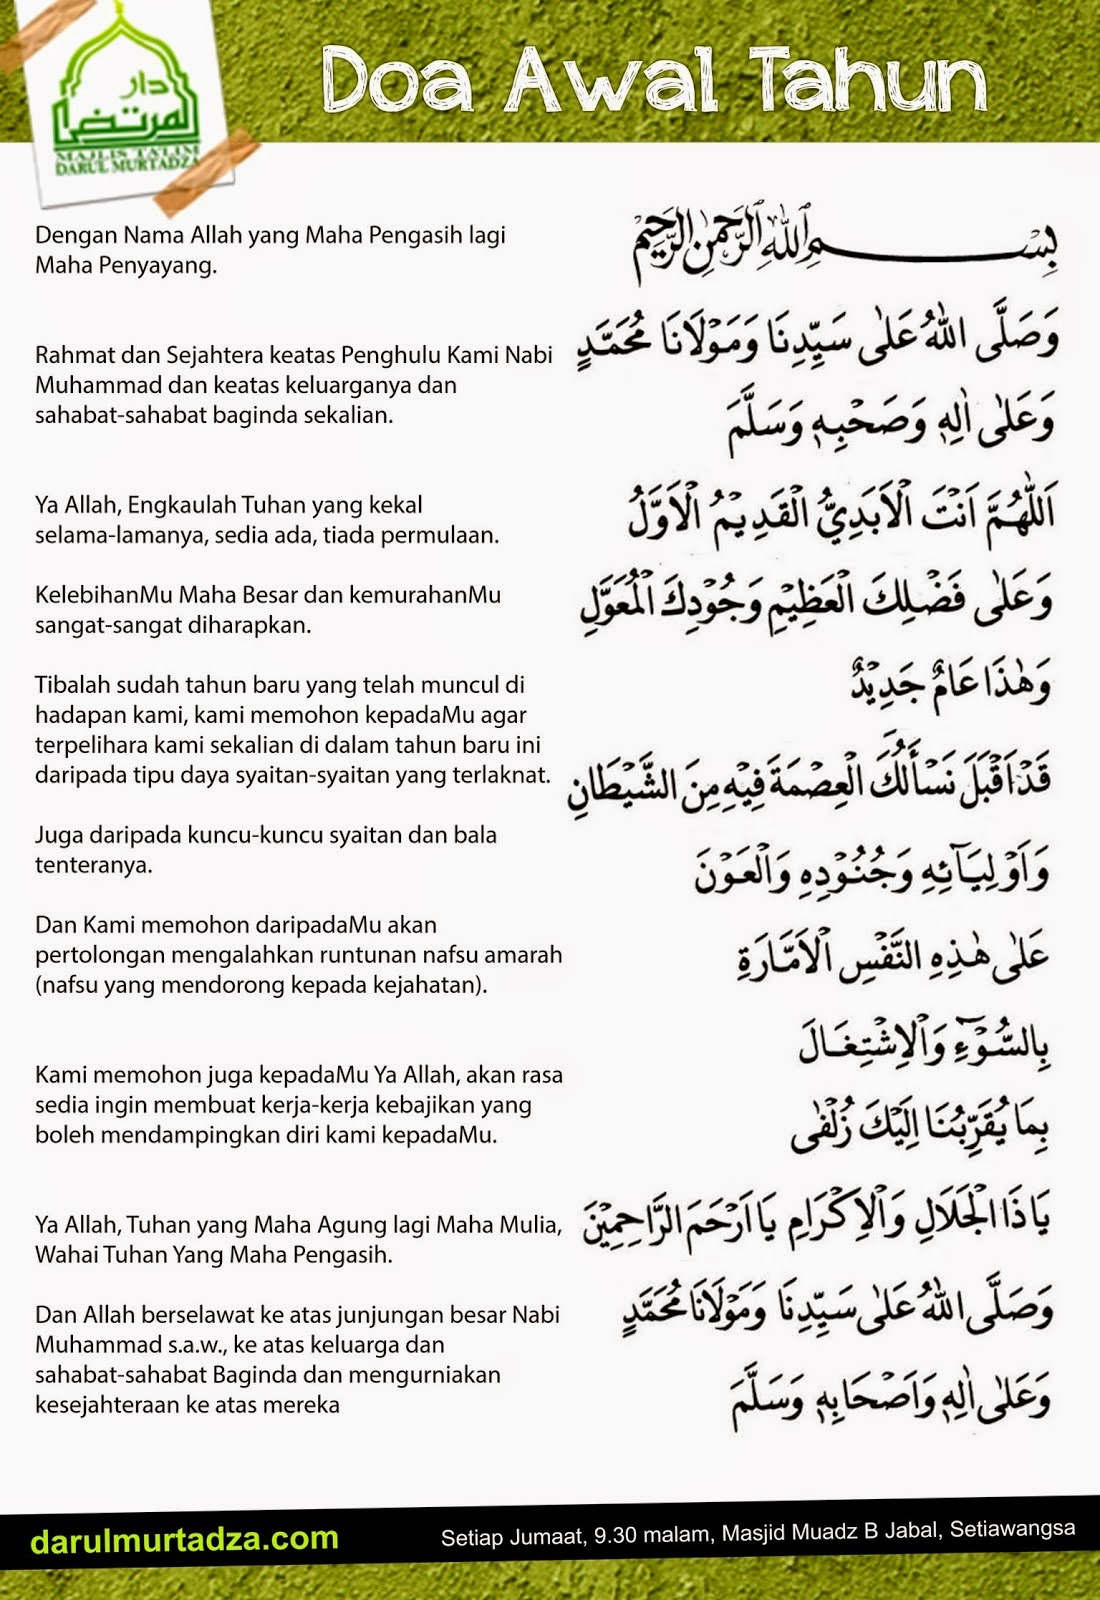 دار
المرتضى
MAJLIS TA'LIM
DARUL MURTADZA
Doa Awal Tahun
Dengan Nama Allah yang Maha Pengasih lagi
Maha Penyayang.
Rahmat dan Sejahtera keatas Penghulu Kami Nabi
Muhammad dan keatas keluarganya dan
sahabat-sahabat baginda sekalian.
Ya Allah, Engkaulah Tuhan yang kekal
selama-lamanya, sedia ada, tiada permulaan.
KelebihanMu Maha Besar dan kemurahanMu
sangat-sangat diharapkan.
Tibalah sudah tahun baru yang telah muncul di
hadapan kami, kami memohon kepadaMu agar
terpelihara kami sekalian di dalam tahun baru ini
daripada tipu daya syaitan-syaitan yang terlaknat.
Juga daripada kuncu-kuncu syaitan dan bala
tenteranya.
Dan Kami memohon daripadaMu akan
pertolongan mengalahkan runtunan nafsu amarah
(nafsu yang mendorong kepada kejahatan).
Kami memohon juga kepadaMu Ya Allah, akan rasa
sedia ingin membuat kerja-kerja kebajikan yang
boleh mendampingkan diri kami kepadaMu.
Ya Allah, Tuhan yang Maha Agung lagi Maha Mulia,
Wahai Tuhan Yang Maha Pengasih.
Dan Allah berselawat ke atas junjungan besar Nabi
Muhammad s.a.w., ke atas keluarga dan
sahabat-sahabat Baginda dan mengurniakan
kesejahteraan ke atas mereka
بِسْمِ ٱللّٰهِ ٱلرَّحْمٰنِ ٱلرَّحِيْمِ
وَصَلَّى اللّٰهُ عَلٰى سَيِّدِنَا وَمَوْلَانَا مُحَمَّدٍ
وَعَلٰى اٰلِهٖ وَصَحْبِهٖ وَسَلَّمَ
اَللّٰهُمَّ اَنْتَ الْاَبَدِيُّ الْقَدِيْمُ الْاَوَّلُ
وَعَلٰى فَضْلِكَ الْعَظِيْمِ وَجُوْدِكَ الْمُعَوَّلِ
وَهٰذَا عَامٌ جَدِيْدٌ
قَدْ اَقْبَلَ نَسْأَلُكَ الْعِصْمَةَ فِيْهِ مِنَ الشَّيْطَانِ
وَاَوْلِيَآئِهِ وَجُنُوْدِهِ وَالْعَوْنَ
عَلٰى هٰذِهِ النَّفْسِ الْاَمَّارَةِ
بِالسُّوْٓءِ وَالْاِشْتِغَالَ
بِمَا يُقَرِّبُنَا اِلَيْكَ زُلْفٰى
يَا ذَا الْجَلَالِ وَالْاِكْرَامِ يَا اَرْحَمَ الرَّاحِمِيْنَ
وَصَلَّى اللّٰهُ عَلٰى سَيِّدِنَا وَمَوْلَانَا مُحَمَّدٍ
وَعَلٰى اٰلِهٖ وَاَصْحَابِهٖ وَسَلَّمَ
darulmurtadza.com
Setiap Jumaat, 9.30 malam, Masjid Muadz B Jabal, Setiawangsa